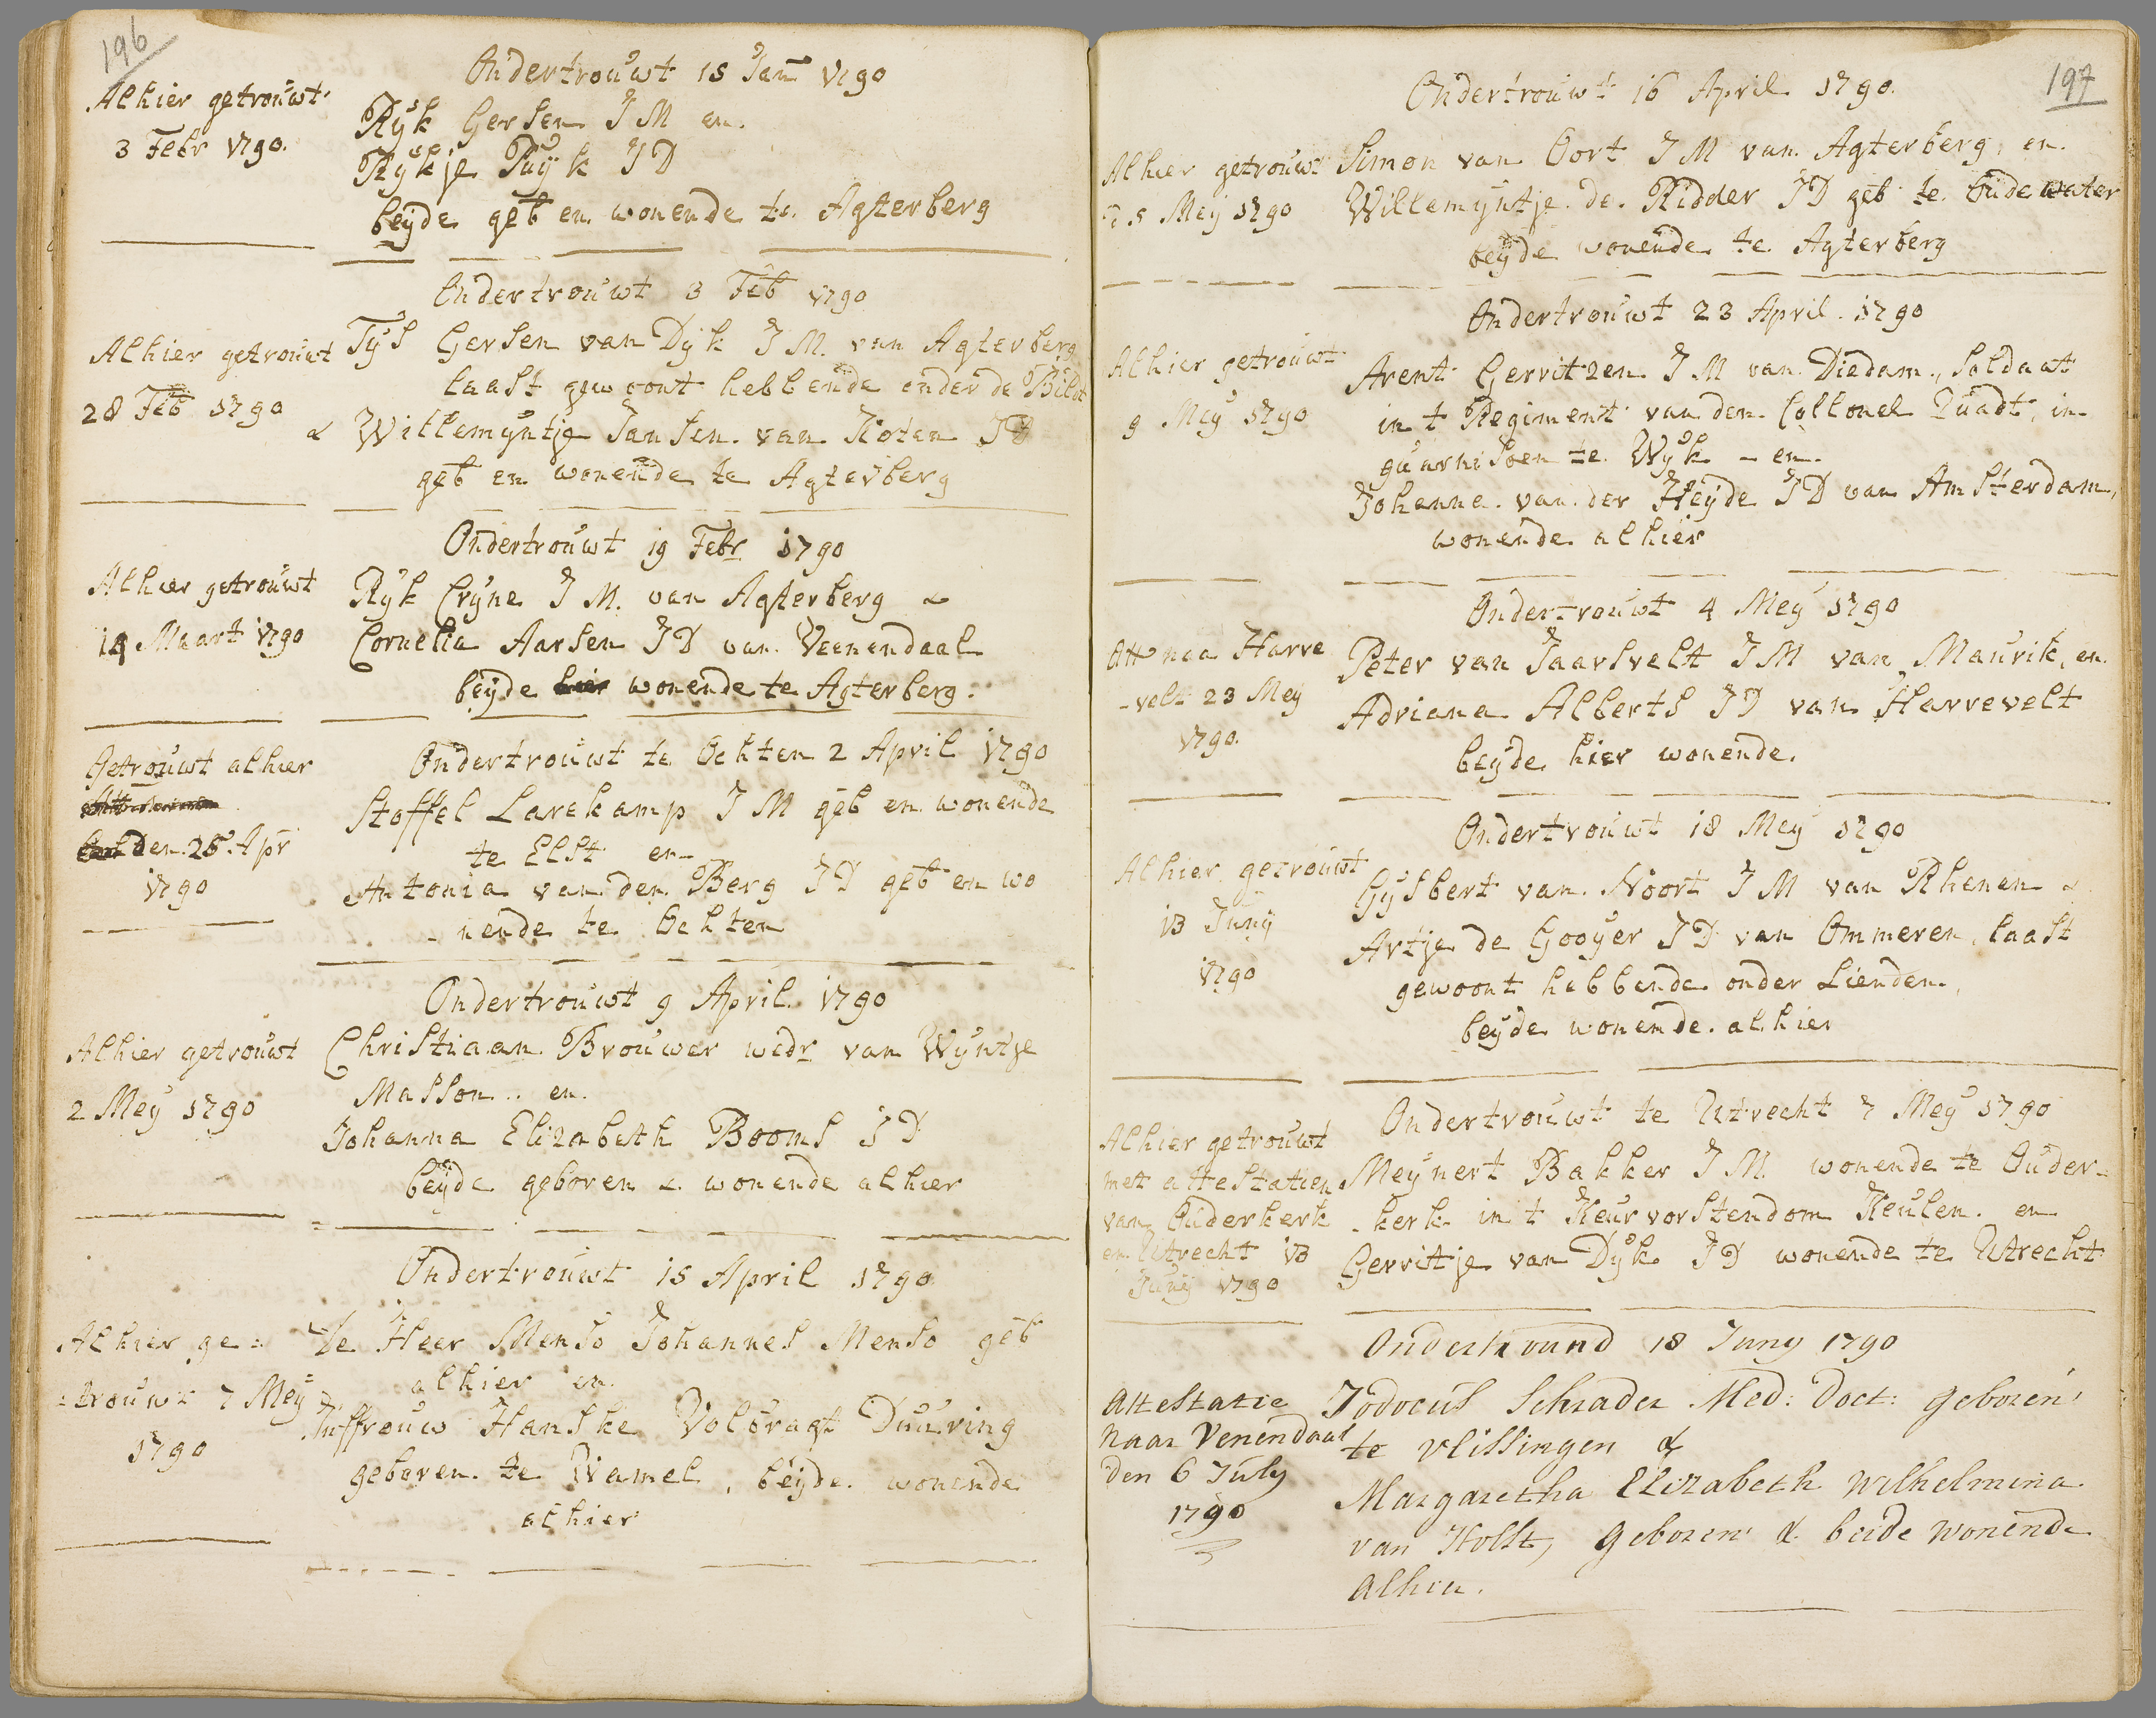 196
Ondertrouwt 15 Jan 1790
Alhier getrouwt
3 Febr 1790.
Ryk Gersen J M en
Rykje Puyk J D
beyde geb en wonende te Agterberg
Ondertrouwt 3 Feb 1790
Alhier getrouwt
28 Feb 1790
Tys Gersen van Dyk J M. van Agterberg
laast gewoont hebbende onder de Bildt
& Willemyntje Jansen van Koten J D
geb en wonende te Agterberg
Ondertrouwt 19 Febr 1790
Alhier getrouwt
14 Maart 1790
Ryk Cryne J M. van Agterberg &
Cornelia Aarsen J D van Veenendaal
beyde hier wonende te Agterberg.
Ondertrouwt te Ochten 2 April 1790
Getrouwt alhier
den 25 Apr
1790
Stoffel Larekamp J M geb en wonende
te Elst en
Antonia van den Berg J D geb en wo
- nende te Ochten
Ondertrouwt 9 April 1790
Alhier getrouwt
2 Mey 1790
Christiaan Brouwer wedr van Wyntje
Masson .. en
Johanna Elizabeth Booms J D
beyde geboren & wonende alhier
Ondertrouwt 15 April 1790
Alhier ge=
=trouwt 7 Mey
1790
De Heer Menso Johannes Menso geb
alhier en
Juffrouw Hanske Volbragt Duuring
geboren te Wamel, beyde wonende
alhier
197
Ondertrouwt 16 April 1790.
Alhier getrouwt
25 Mey 1790
Simon van Oort J M van Agterberg, en
Willemyntje de Ridder J D geb te Oudewater
beyde wonende te Agterberg
Ondertrouwt 23 April 1790
Alhier getrouwt
9 Mey 1790
Arent Gerritzen J M van Diedam, Soldaat
in t Regiment van den Collonel Quadt, in
guarnisoen te Wyk - en
Johanna van der Heyde J D van Amsterdam,
wonende alhier
Ondertrouwt 4 Mey 1790
Att naa Harre
-velt 23 Mey
1790.
Peter van Jaarsvelt J M van Maurik, en
Adriana Alberts J D van Harrevelt
beyde hier wonende.
Ondertrouwt 18 Mey 1790
Alhier getrouwt
13 Juny
1790
Gysbert van Noort J M van Rhenen &
Artje de Gooyer J D van Ommeren, laast
gewoont hebbende onder Lienden,
beyde wonende alhier
Ondertrouwt te Utrecht 7 Mey 1790
Alhier getrouwt
met attestatien
van Ouderkerk
en Utrecht 13
Juny 1790
Meynert Bakker J M. wonende te Ouder-
kerk in t Keurvorstendom Keulen en
Gerritje van Dyk J D wonende te Utrecht
Ondertrouwd 18 Juny 1790
Attestatie
naar Venendaal
den 6 July
1790
Jodocus Schrader Med: Doct: geboren
te Vlissingen &
Margaretha Elizabeth Wilhelmina
van Holst, geboren & beide wonende
alhier.